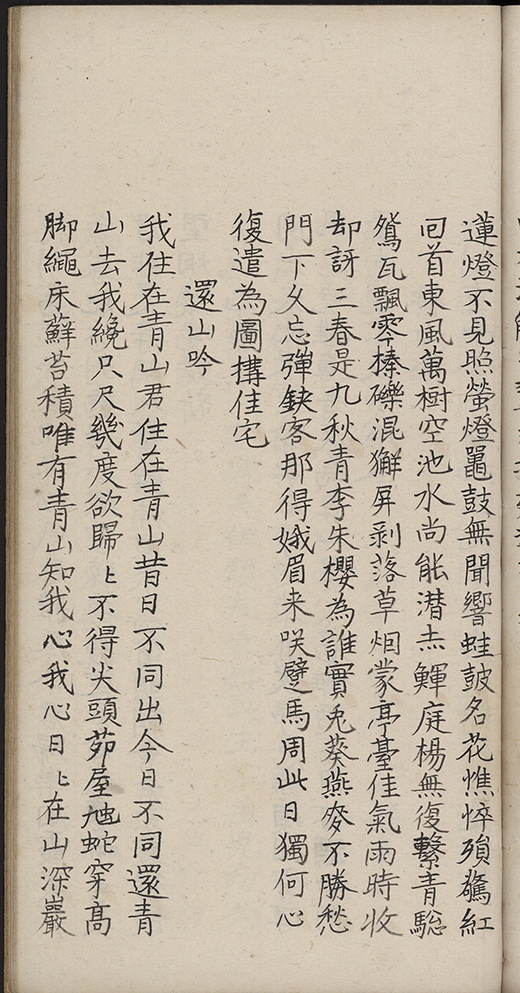 蓮燈不見照螢燈黽鼓無聞響蛙鼓名花憔悴殞驚紅
回首東風萬樹空池水尚能潛赤鯶庭楊無復繫青驄
鴛瓦飄零榛礫混獬屏剥落草烟蒙亭臺佳氣雨時收
却訝三春是九秋青李朱櫻為誰實兎葵燕麥不勝愁
門下久忘彈鋏客那得娥眉来咲躄馬周此日獨何心
復遣為圖搆佳宅
還山吟
我住在青山君住在青山昔日不同出今日不同還青
山去我纔只尺幾度欲歸〻不得尖頭茆屋虺蛇穿高
脚繩床蘚苔積唯有青山知我心我心日〻在山深巖